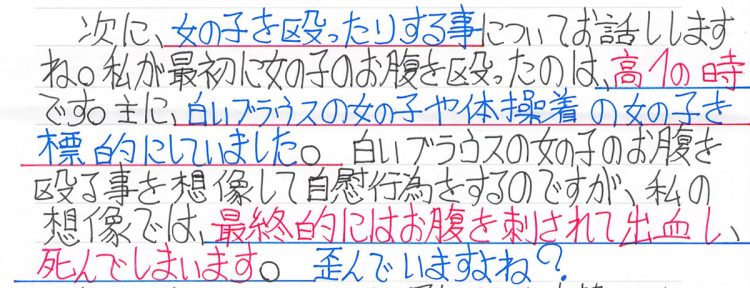 次に、女の子を殴ったりする事についてお話しします
ね。私が最初に女の子のお腹を殴ったのは、高1の時
です。主に、白いブラウスの女の子や体操着の女の子を
標的にしていました。白いブラウスの女の子のお腹を
殴る事を想像して自慰行為をするのですが、私の
想像では、最終的にはお腹を刺されて出血し、
死んでしまいます。歪んでいますよね?